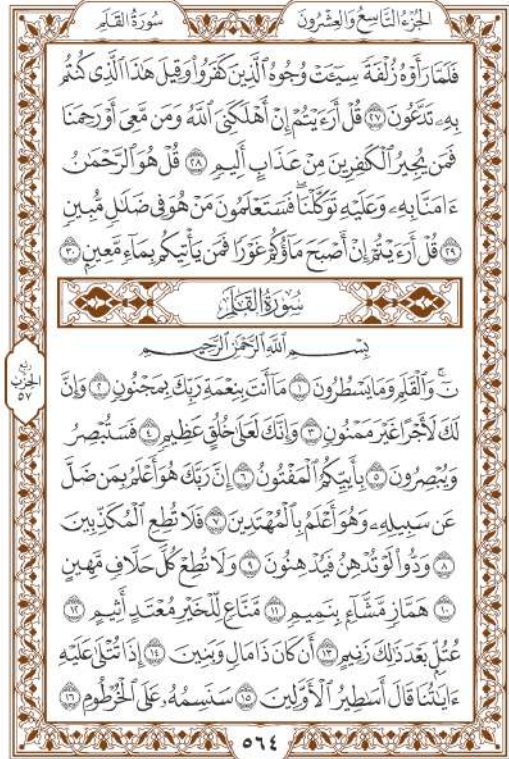 سُورَةُ القَلَمِ
الجُزْءُ التَّاسِعُ وَالعِشْرُونَ
فَلَمَّا رَأَوْهُ زُلْفَةً سِيٓـَٔتْ وُجُوهُ ٱلَّذِينَ كَفَرُوا۟ وَقِيلَ هَٰذَا ٱلَّذِى كُنتُم
بِهِۦ تَدَّعُونَ ٢٧ قُلْ أَرَءَيْتُمْ إِنْ أَهْلَكَنِىَ ٱللَّهُ وَمَن مَّعِىَ أَوْ رَحِمَنَا
فَمَن يُجِيرُ ٱلْكَٰفِرِينَ مِنْ عَذَابٍ أَلِيمٍ ٢٨ قُلْ هُوَ ٱلرَّحْمَٰنُ
ءَامَنَّا بِهِۦ وَعَلَيْهِ تَوَكَّلْنَا ۖ فَسَتَعْلَمُونَ مَنْ هُوَ فِى ضَلَٰلٍ مُّبِينٍ
٢٩ قُلْ أَرَءَيْتُمْ إِنْ أَصْبَحَ مَآؤُكُمْ غَوْرًا فَمَن يَأْتِيكُم بِمَآءٍ مَّعِينٍۭ ٣٠
سُورَةُ القَلَمِ
بِسْمِ ٱللَّهِ ٱلرَّحْمَٰنِ ٱلرَّحِيمِ
نٓ ۚ وَٱلْقَلَمِ وَمَا يَسْطُرُونَ ١ مَآ أَنتَ بِنِعْمَةِ رَبِّكَ بِمَجْنُونٍ ٢ وَإِنَّ
لَكَ لَأَجْرًا غَيْرَ مَمْنُونٍ ٣ وَإِنَّكَ لَعَلَىٰ خُلُقٍ عَظِيمٍ ٤ فَسَتُبْصِرُ
وَيُبْصِرُونَ ٥ بِأَييِّكُمُ ٱلْمَفْتُونُ ٦ إِنَّ رَبَّكَ هُوَ أَعْلَمُ بِمَن ضَلَّ
عَن سَبِيلِهِۦ وَهُوَ أَعْلَمُ بِٱلْمُهْتَدِينَ ٧ فَلَا تُطِعِ ٱلْمُكَذِّبِينَ
٨ وَدُّوا۟ لَوْ تُدْهِنُ فَيُدْهِنُونَ ٩ وَلَا تُطِعْ كُلَّ حَلَّافٍ مَّهِينٍ
١٠ هَمَّازٍ مَّشَّآءٍۭ بِنَمِيمٍ ١١ مَّنَّاعٍ لِّلْخَيْرِ مُعْتَدٍ أَثِيمٍ ١٢
عُتُلٍّۭ بَعْدَ ذَٰلِكَ زَنِيمٍ ١٣ أَن كَانَ ذَا مَالٍ وَبَنِينَ ١٤ إِذَا تُتْلَىٰ عَلَيْهِ
ءَايَٰتُنَا قَالَ أَسَٰطِيرُ ٱلْأَوَّلِينَ ١٥ سَنَسِمُهُۥ عَلَى ٱلْخُرْطُومِ ١٦
رُبْع
الحِزْب
٥٧
٥٦٤